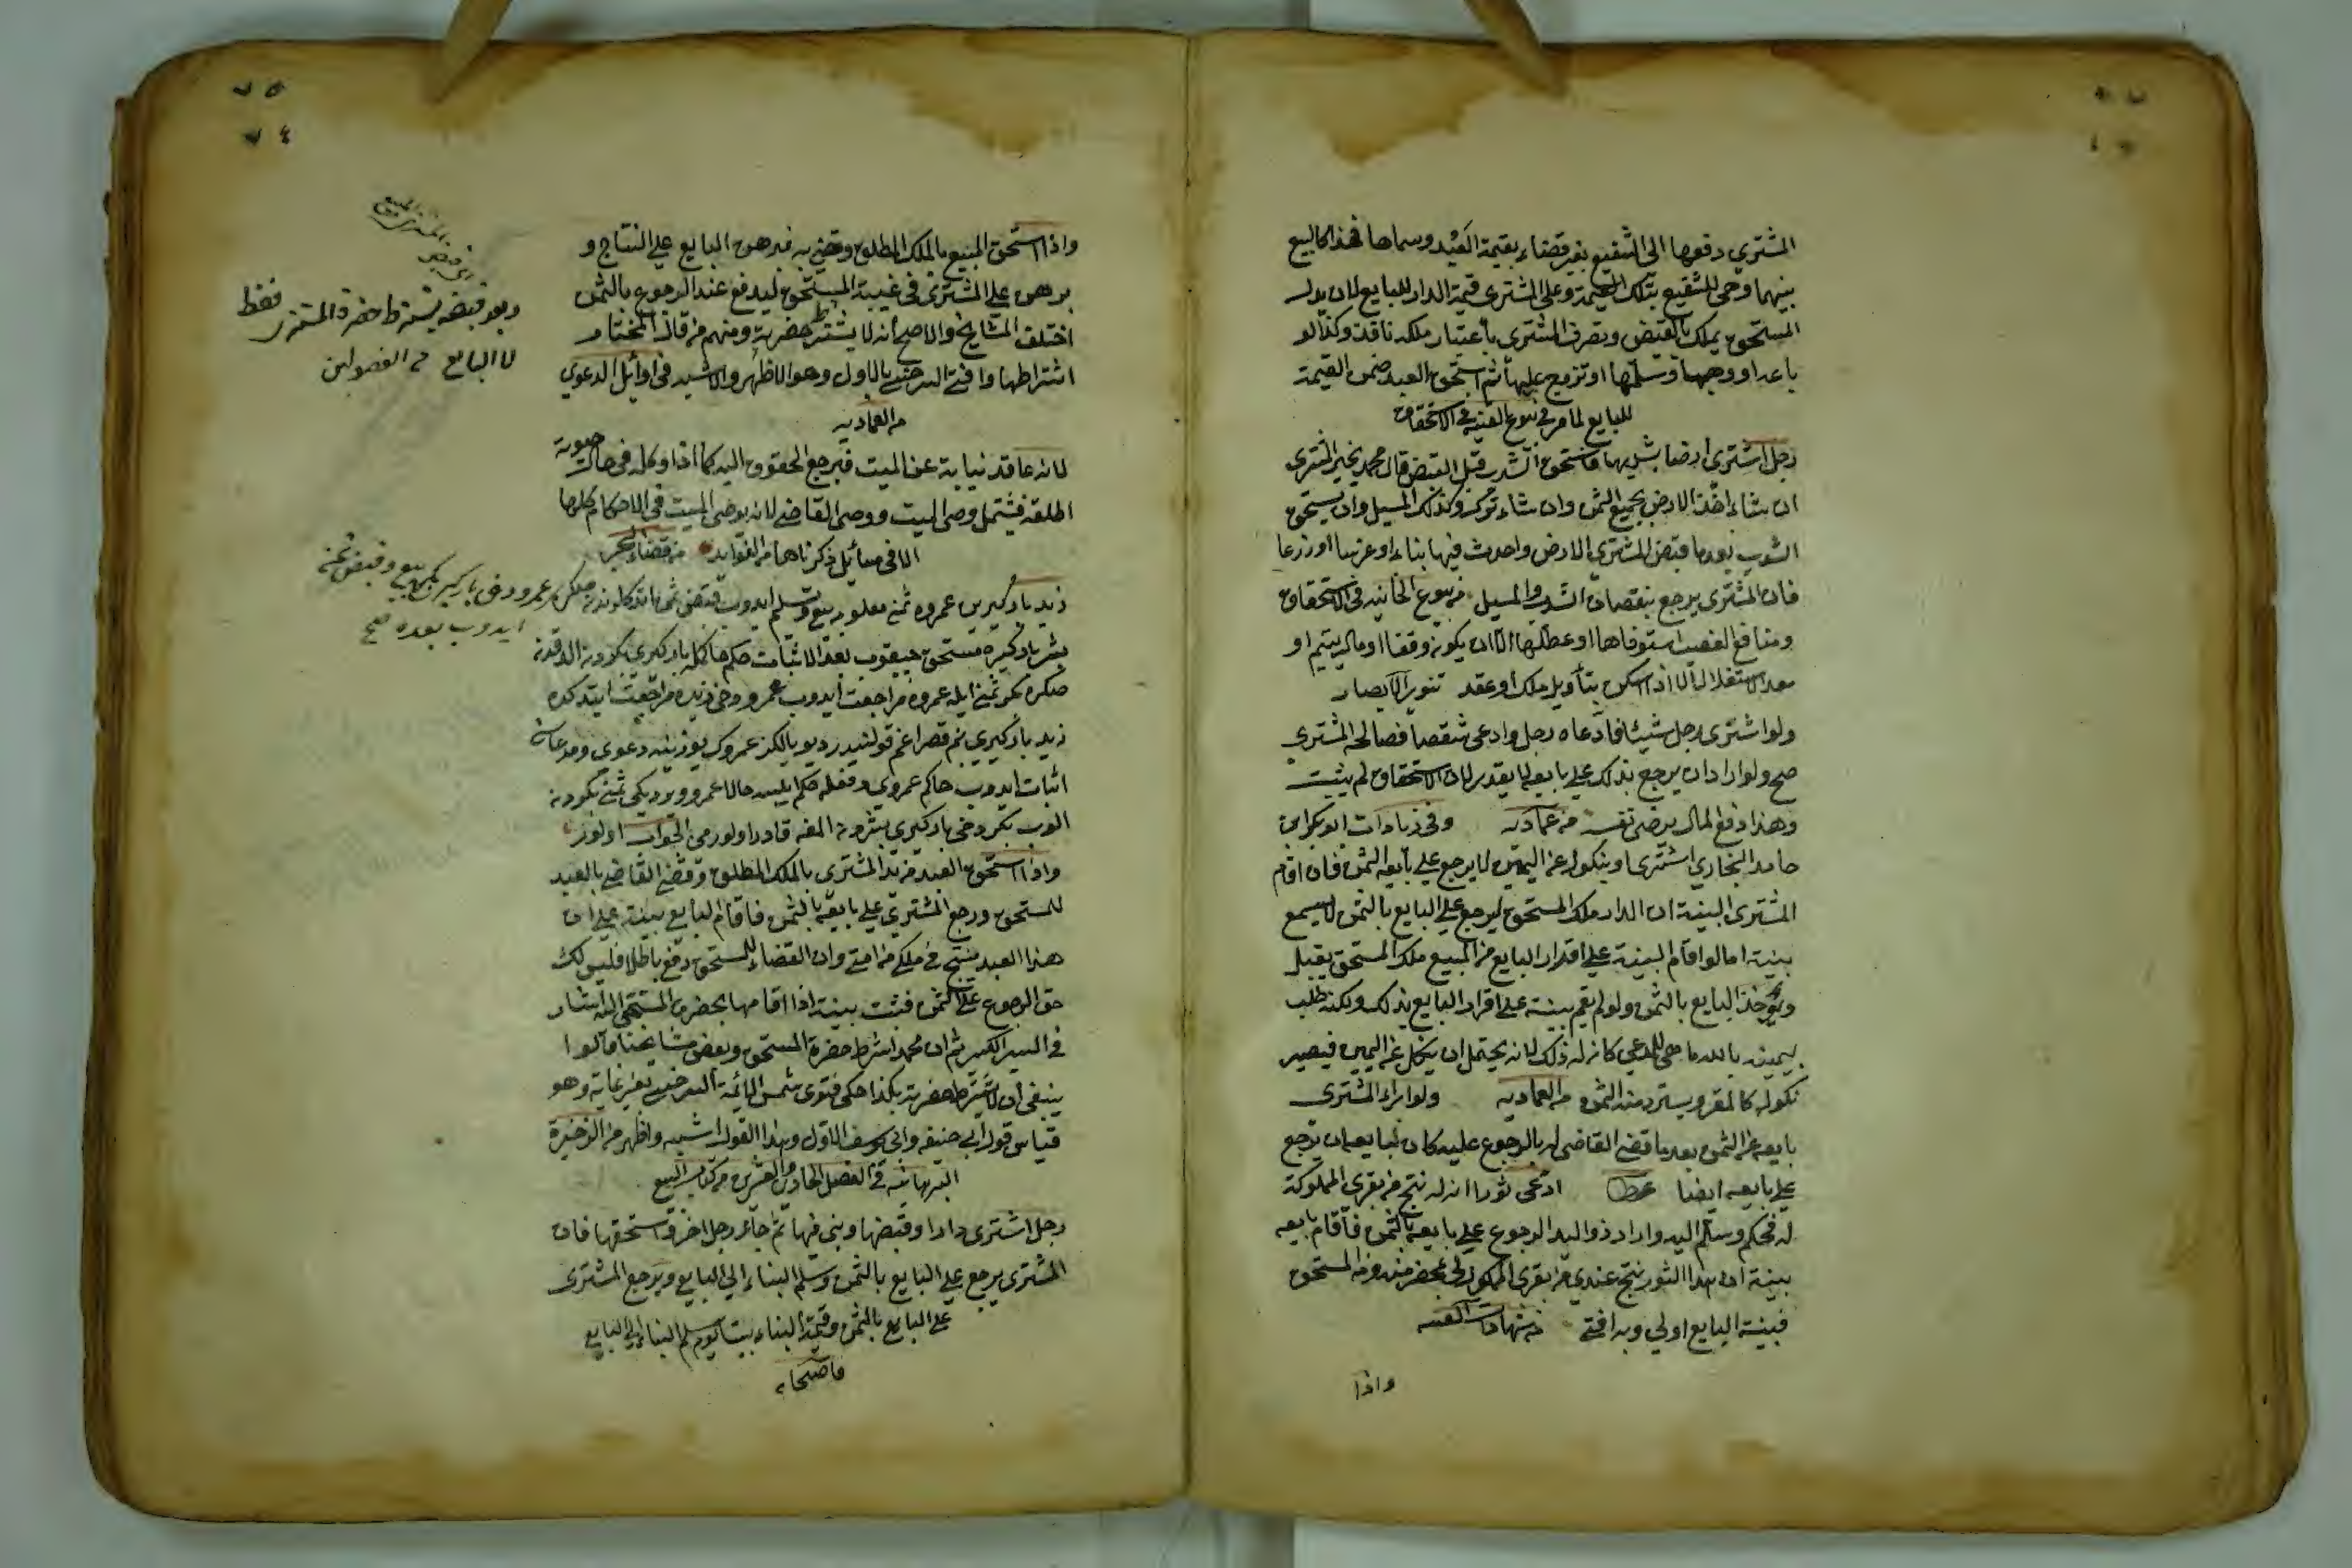 المشتري دفعها الى الشفيع بغير قضاء بقيمة العبد وسماها فهذا كالبيع
بينهما وحى للشفيع بتلك القيمة وعلى المشتري قيمة الدار للبايع لان بدل
المستحق يملك بالقبض وتصرف المشتري باعتبار ملكه نافذ وكذا لو
باعه او وهبها وسلمها او تزوج عليها ثم استحق العبد ضمن القيمة
للبايع لما مر في بيوع في الاستحقاق
رجل اشترى ارضا بشربها فاستحق الشرب قبل القبض قال محمد يخير المشتري
ان شاء اخذ الارض بجميع الثمن وان شاء ترك وكذلك المسيل وان يستحق
الشرب بعد ما قبض المشتري الارض واحدث فيها بناء او غرسا او زرعا
فان المشتري يرجع بنقصان الشرب والمسيل من بيوع الخانيه في الاستحقاق
ومنافع الغصب استوفاها او عطلها الا ان يكون وقفا او مال يتيم او
معد الاستغلال الا اذا سكن بتأويل ملك او عقد تنوير الابصار
ولو اشترى رجل شيئا فادعاه رجل وادعى شقصا فصالحه المشتري
صح ولو اراد ان يرجع بذلك على بايعه لا يقدر لان الاستحقاق لم يثبت
وهذا دفع المال برضى نفسه من عماديه وفي زيادات ابو بكر ابن
حامد البخاري اشترى او بنكوله عن اليمين لا يرجع على بايعه الثمن فان اقام
المشتري البينة ان الدار ملك المستحق ليرجع على البايع بالثمن لا يسمع
بينته اما لو اقام البينة على اقرار البايع من المبيع ملك المستحق يقبل
ويؤخذ البايع بالثمن ولو لم يقم بينة على اقرار البايع بذلك ولكنه طلب
يمينه بالله ما هى للمدعي كان له ذلك لانه يحتمل ان ينكل عن اليمين فيصير
نكوله كالمقر ويسترد منه الثمن من العماديه ولو ابراء المشتري
بايعه عن الثمن بعد ما قضى القاضي له بالرجوع عليه كان لبايعه ان يرجع
على بايعه ايضا عط ادعى ثورا انه له نتج من بقرى المملوكة
له فحكم وسلم اليه واراد ذو اليد الرجوع على بايعه بالثمن فأقام بايعه
بينة ان هذا الثور نتج عندي من بقرى المملوك لى بمحضر منه ومن المستحق
فبينة البايع اولى وبه افتى من شهادات القنيه
واذا
٧٥
٧٤
واذا استحق المبيع بالملك المطلق وقضى به فبرهن البايع على النتاج و
برهن على المشتري في غيبة المستحق ليدفع عند الرجوع بالثمن
اختلف المشايخ والاصح أنه لا يشترط حضرته ومنهم من قال المختار
اشتراطها وافتى السرخسي بالاول وهو الاظهر والاشبه في اوائل الدعوي
من العماديه
لانه عاقد نيابة عن الميت فيرجع الحقوق اليه كما اذا وكله في حال حيوته
اطلقه فشتمل وصى الميت ووصى القاضي لانه بوصى الميت في الاحكام كلها
الا في مسائل ذكرناها من الفوايد من قضاء البحر
زيد باركيرين عمروه ثمنه معلومه بيع وتسليم ايدوب قبض ثمن ايتدكدن
بشر باركيره مستحق چيقوب بعد الاثبات حكم حاكمله باركيرى بكردن الدقدن
صكره بكر ثمن ايله عمروه مراجعت ايدوب عمرو دخى زيده مراجعت ايتدكده
زيد باركيرى بنم قصراغم قولنيدر ديو بالكز عمروك يوزينه دعوى ومدعاسى
اثبات ايدوب حاكم عمروى دفعله حكم ايلسه حالا عمرو ويرديكى ثمنى بكردن
الوب بكر دخى باركيرى بشردن المغه قادر اولورمى الجواب اولور
واذا استحق العبد من يد المشتري بالملك المطلق وقضى القاضي بالعبد
للمستحق ورجع المشتري على بايعه بالثمن فاقام البايع بينة على ان
هذا العبد نتج في ملكي من امتى وان القضاء للمستحق وقع باطلا فليس لك
حق الرجوع على بالثمن فثبت بينته اذا اقامها بحضرة المستحق اليه اشار
في السير الكبير ثم ان محمد اشرط حضرة المستحق وبعض مشايخنا قالوا
ينبغي أن لا يشترط حضرته بكذا حكى فتوى شمس الائمة السرخسي وهو
قياس قول ابى حنيفه وابي يوسف الاول وهذا القول اشبه واظهر من الذخيرة
البرهانيه في الفصل الحادي والعشرين من كتاب البيع
رجل اشترى دارا وقبضها وبنى فيها ثم جاء رجل اخر واستحقها فان
المشترى يرجع على البايع بالثمن وسلم البناء الى البايع ويرجع المشترى
على البايع بالثمن وقيمة البناء يوم سلم البناء الى البايع
قاضيخان
وبعد قبضه يشترط حضرة المشترى فقط
لا البايع من الفصولين
بكر بيع وقبض ثمن
ايدوب بعده صح